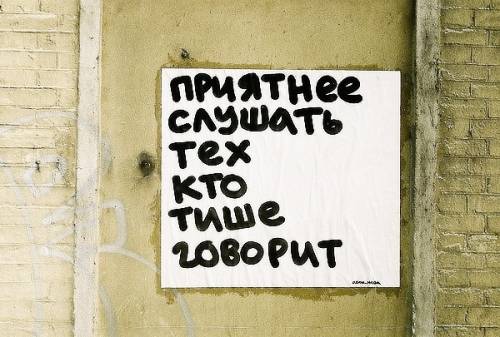 приятнее
слушать
тех
кто
тише
говорит